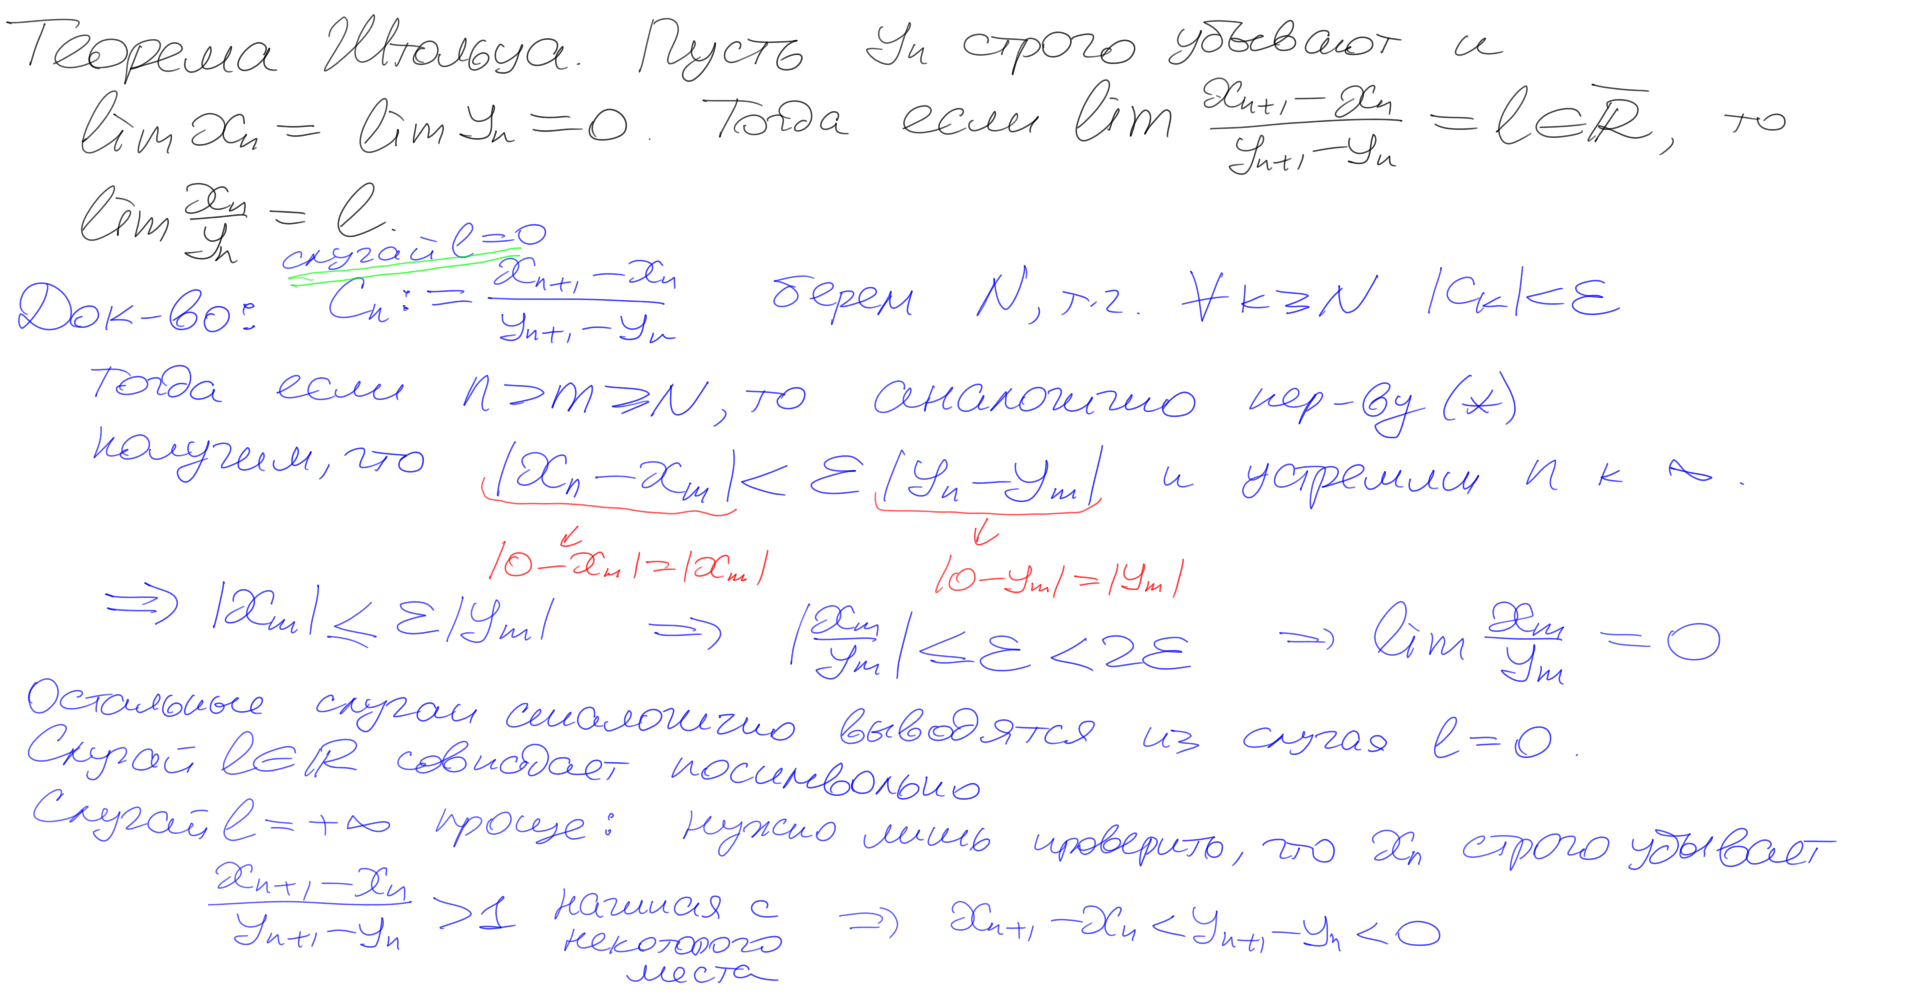 Теорема Штольца. Пусть yₙ строго убывают и
lim xₙ = lim yₙ = 0. Тогда если lim (xₙ₊₁ − xₙ)/(yₙ₊₁ − yₙ) = l ∈ R̅, то
lim xₙ/yₙ = l.
случай l = 0
Док-во: Cₙ := (xₙ₊₁ − xₙ)/(yₙ₊₁ − yₙ) берем N, т.ч. ∀ k ⩾ N |Cₖ| < ε
Тогда если n > m ⩾ N, то аналогично нер-ву (*)
получим, что |xₙ − xₘ| < ε |yₙ − yₘ| и устремим n к ∞.
|0 − xₘ| = |xₘ| |0 − yₘ| = |yₘ|
⇒ |xₘ| ≤ ε|yₘ| ⇒ |xₘ/yₘ| ≤ ε < 2ε ⇒ lim xₘ/yₘ = 0
Остальные случаи аналогично выводятся из случая l = 0.
Случай l ∈ ℝ совпадает посимвольно
Случай l = +∞ проще: нужно лишь проверить, что xₙ строго убывает
(xₙ₊₁ − xₙ)/(yₙ₊₁ − yₙ) > 1 начиная с некоторого места ⇒ xₙ₊₁ − xₙ < yₙ₊₁ − yₙ < 0